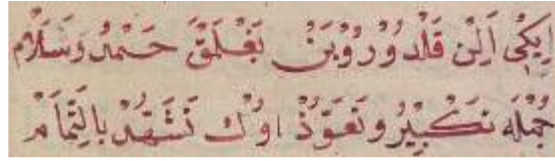 اِيكِى اَلِنْ قَلْدُورُوبَنْ بَغْلَمَقْ حَمْدُ وَسَلَامْ
جُمْلَه تَكْبِيرُ وَتَعَوُّذْ اوُكْ تَشَهُّدْ بِالتَّمَامْ